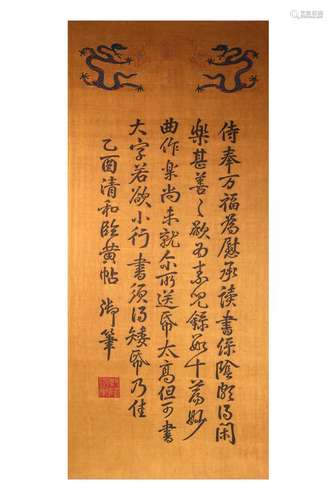 侍奉万福為慰承讀書綠陰頗得閑
樂甚善〻欲為素兒錄數十篇妙
曲作樂尚未就尔所送帋太高但可書
大字若欲小行書須得矮帋乃佳
乙酉清和臨黃帖 御筆